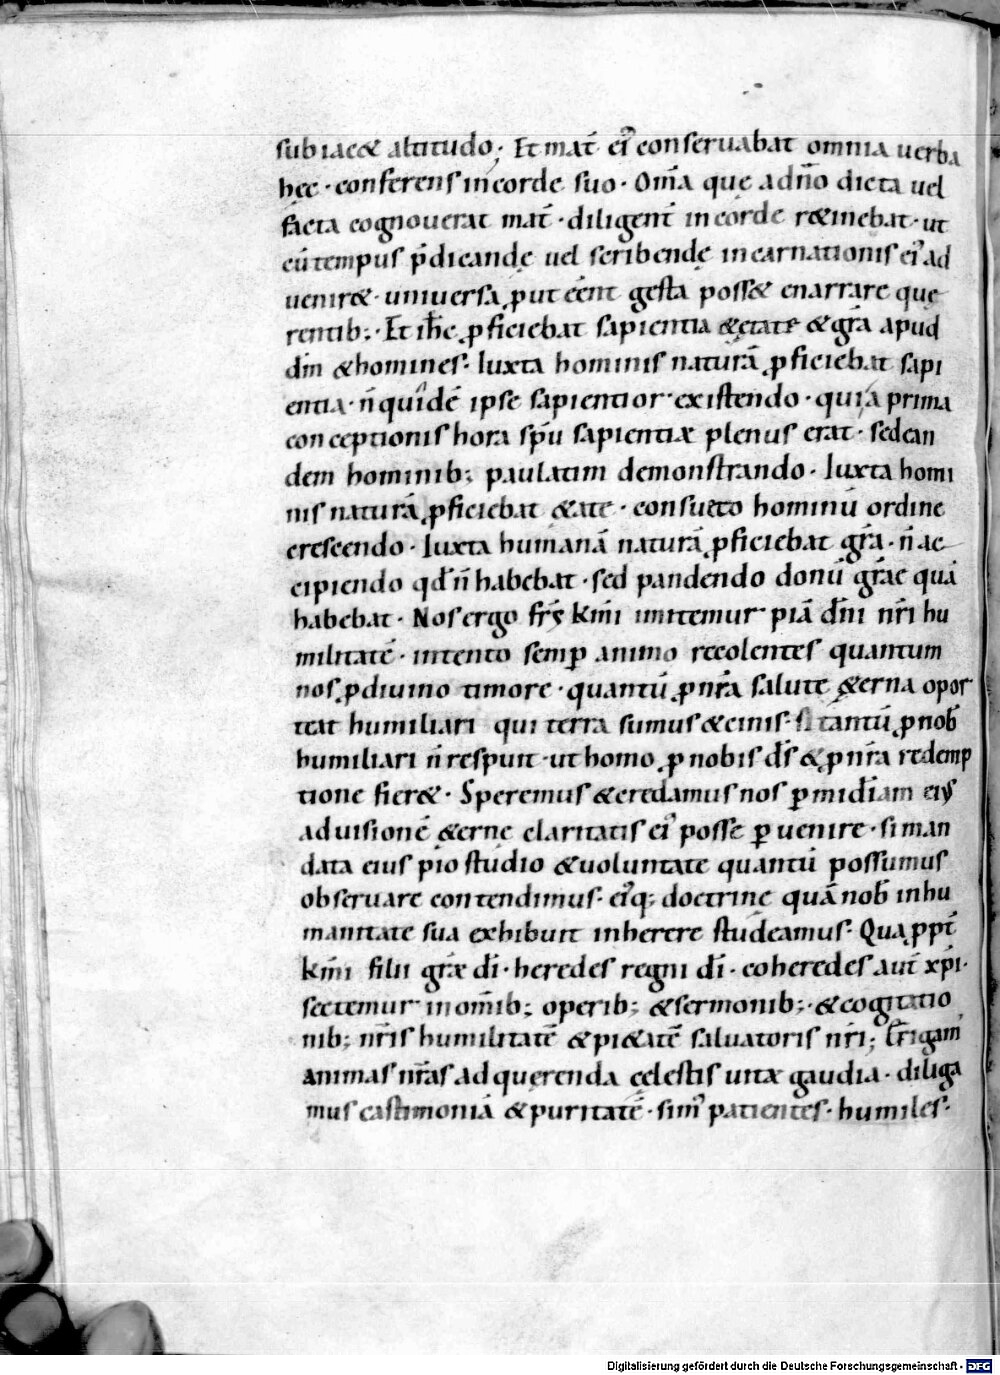 subiac& altitudo; Et mat̄ ei᷒ conseruabat omnia uerba
hęc · conferens in corde suo · Om̄a que a dn̄o dicta uel
facta cognouerat mat̄ · diligent̄ in corde r&inebat · ut
cū tempus p̄dicandę uel scribendę incarnationis ei᷒ ad
uenir& · uniuersa ꝓut eēnt gesta poss& enarrare quę
rentib; · Et ih̄c ꝓficiebat sapientia & ętate & gr̄a apud
dm̄ & homines · Iuxta hominis naturā ꝓficiebat sapi
entia · n̄ quidē ipse sapientior existendo · quia prima
conceptionis hora sp̄u sapientiæ plenus erat · sed ean
dem hominib; paulatim demonstrando · Iuxta homi
nis naturā ꝓficiebat &ate · consueto hominū ordine
crescendo · Iuxta humanā naturā ꝓficiebat gr̄a · n̄ ac
cipiendo qd̄ n̄ habebat · sed pandendo donū gr̄ae quā
habebat · Nos ergo fr̄s km̄i imitemur piā dn̄i nr̄i hu
militatē · intento semp̱ animo recolentes quantum
nos ꝓ diuino timore · quantū ꝓ nr̄a salute &erna opor
teat humiliari qui terra sumus & cinis · si tantū ꝓ nob̄
humiliari n̄ respuit · ut homo ꝓ nobis ds̄ & ꝓ nr̄a redemp
tione fier& · Speremus & credamus nos p̱ mid̄iam eius
ad uisionē &ernę claritatis ei᷒ posse p̱uenire · si man
data eius pio studio & uoluntate quantū possumus
obseruare contendimus · ei᷒q; doctrinę quā nob̄ in hu
manitate sua exhibuit inherere studeamus · Qua ꝓpt̄
km̄i filii gr̄æ dī · heredes regni dī · coheredes aut̄ xp̄i ·
sectemur in om̄ib; operib; & sermonib; · & cogitatio
nib; nr̄is humilitatē & pi&atē saluatoris nr̄i; Erigam᷒
animas nr̄as ad querenda cęlestis uitæ gaudia · diliga
mus castimoniā & puritatē · sim᷒ patientes · humiles ·
Digitalisierung gefördert durch die Deutsche Forschungsgemeinschaft - DFG